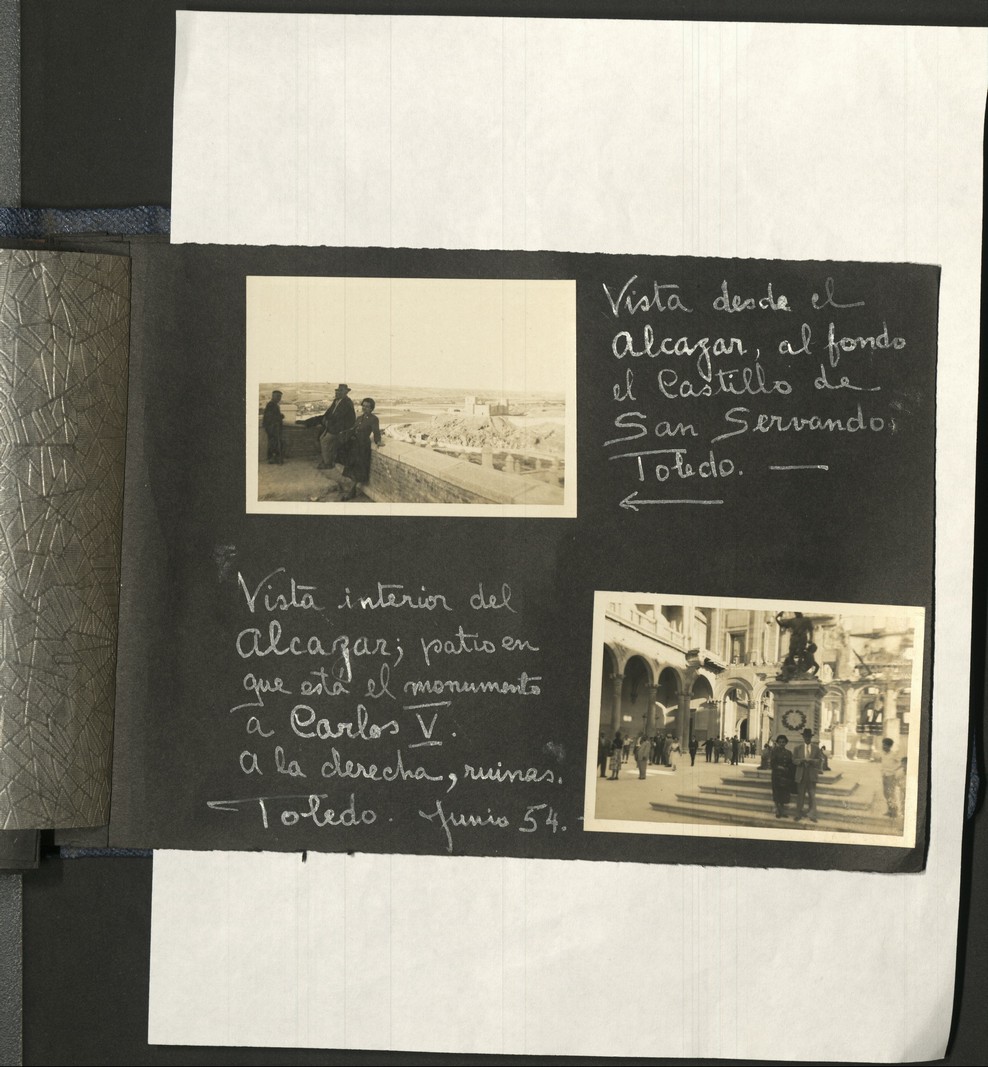 Vista desde el
Alcazar, al fondo
el Castillo de
San Servando.
Toledo. —
←
Vista interior del
Alcazar; patio en
que está el monumento
a Carlos V.
A la derecha, ruinas.
Toledo. Junio 54. -